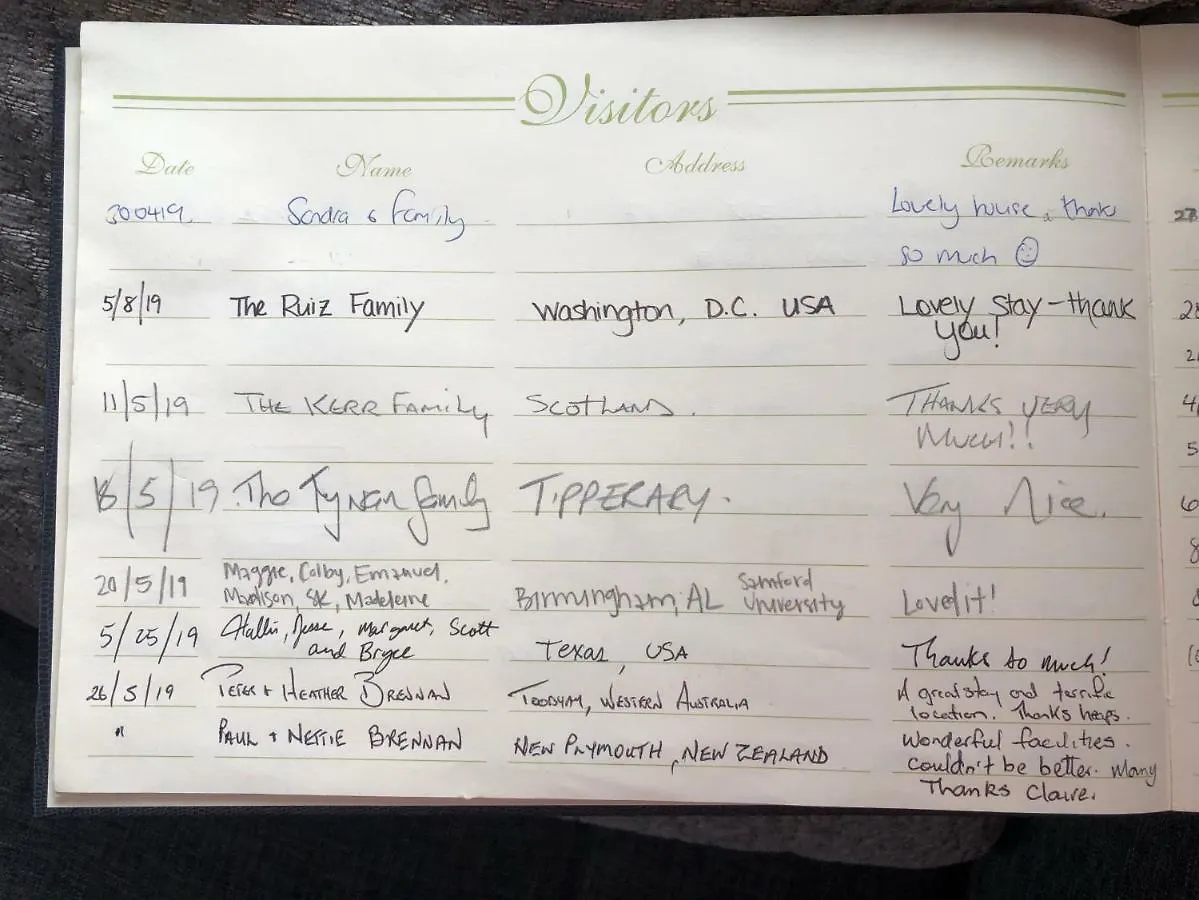 Visitors
Date Name Address Remarks
300419. Sandra & Family Lovely house, thanks
so much ☺
5/8/19 The Ruiz Family Washington, D.C. USA Lovely stay - thank
you!
11/5/19 THE KERR FAMILY SCOTLAND. THANKS VERY
MUCH!!
18/5/19 The TyNAN family TIPPERARY. Very Nice.
20/5/19 Maggie, Colby, Emanuel, Samford
Madison, SK, Madeleine Birmingham, AL University Loved it!
5/25/19 Jesse, Margaret, Scott
and Bryce Texas, USA Thanks so much!
26/5/19 PETER + HEATHER BRENNAN TOODYAY, WESTERN AUSTRALIA A great stay and terrific
location. Thanks heaps.
" PAUL + NETTIE BRENNAN NEW PLYMOUTH, NEW ZEALAND Wonderful facilities.
Couldn't be better. Many
Thanks Claire.